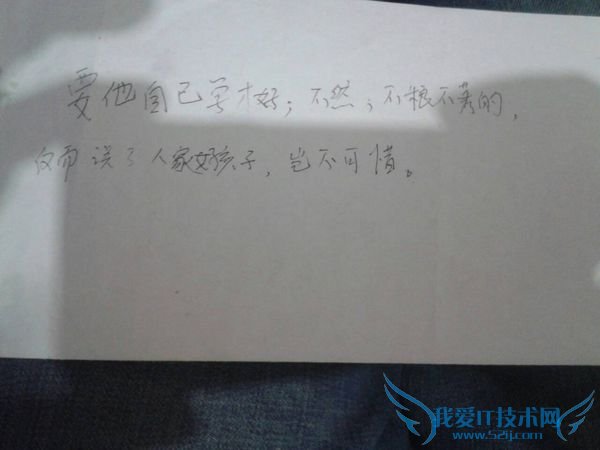 要他自己学才好；不然；不粮不莠的，
反而误了人家好孩子，岂不可惜。
我爱IT技术网
www.52ij.com